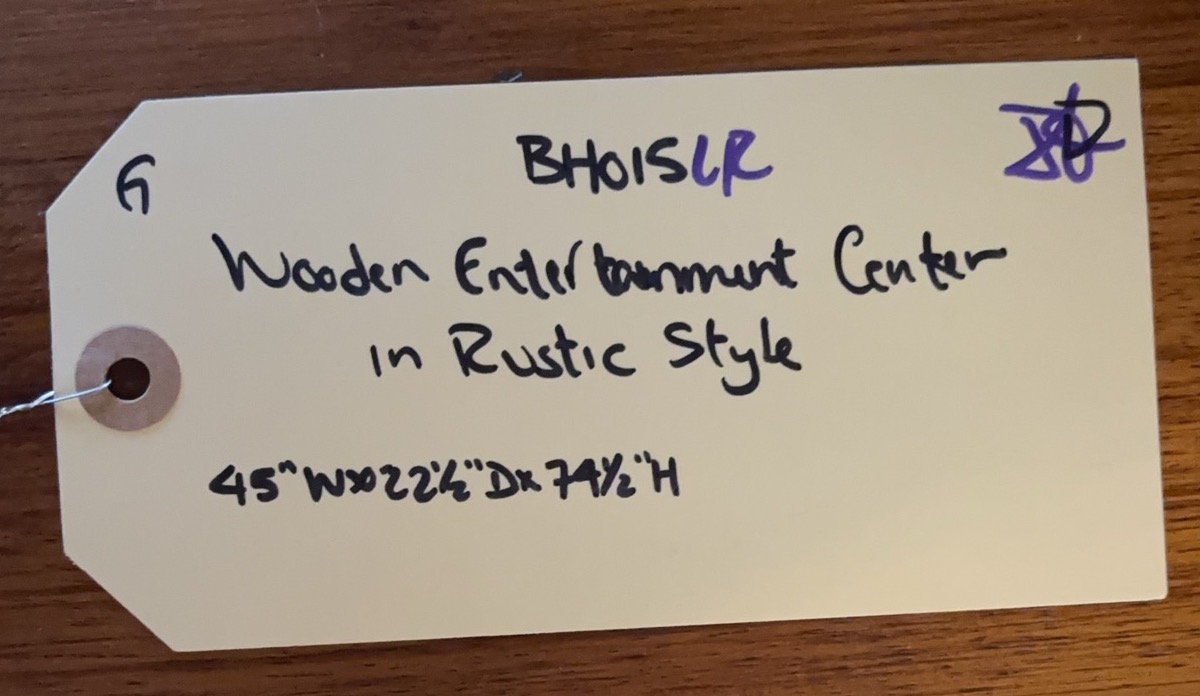 G
BH015LR
D
Wooden Entertainment Center
in Rustic Style
45"W x 22½"D x 74½"H